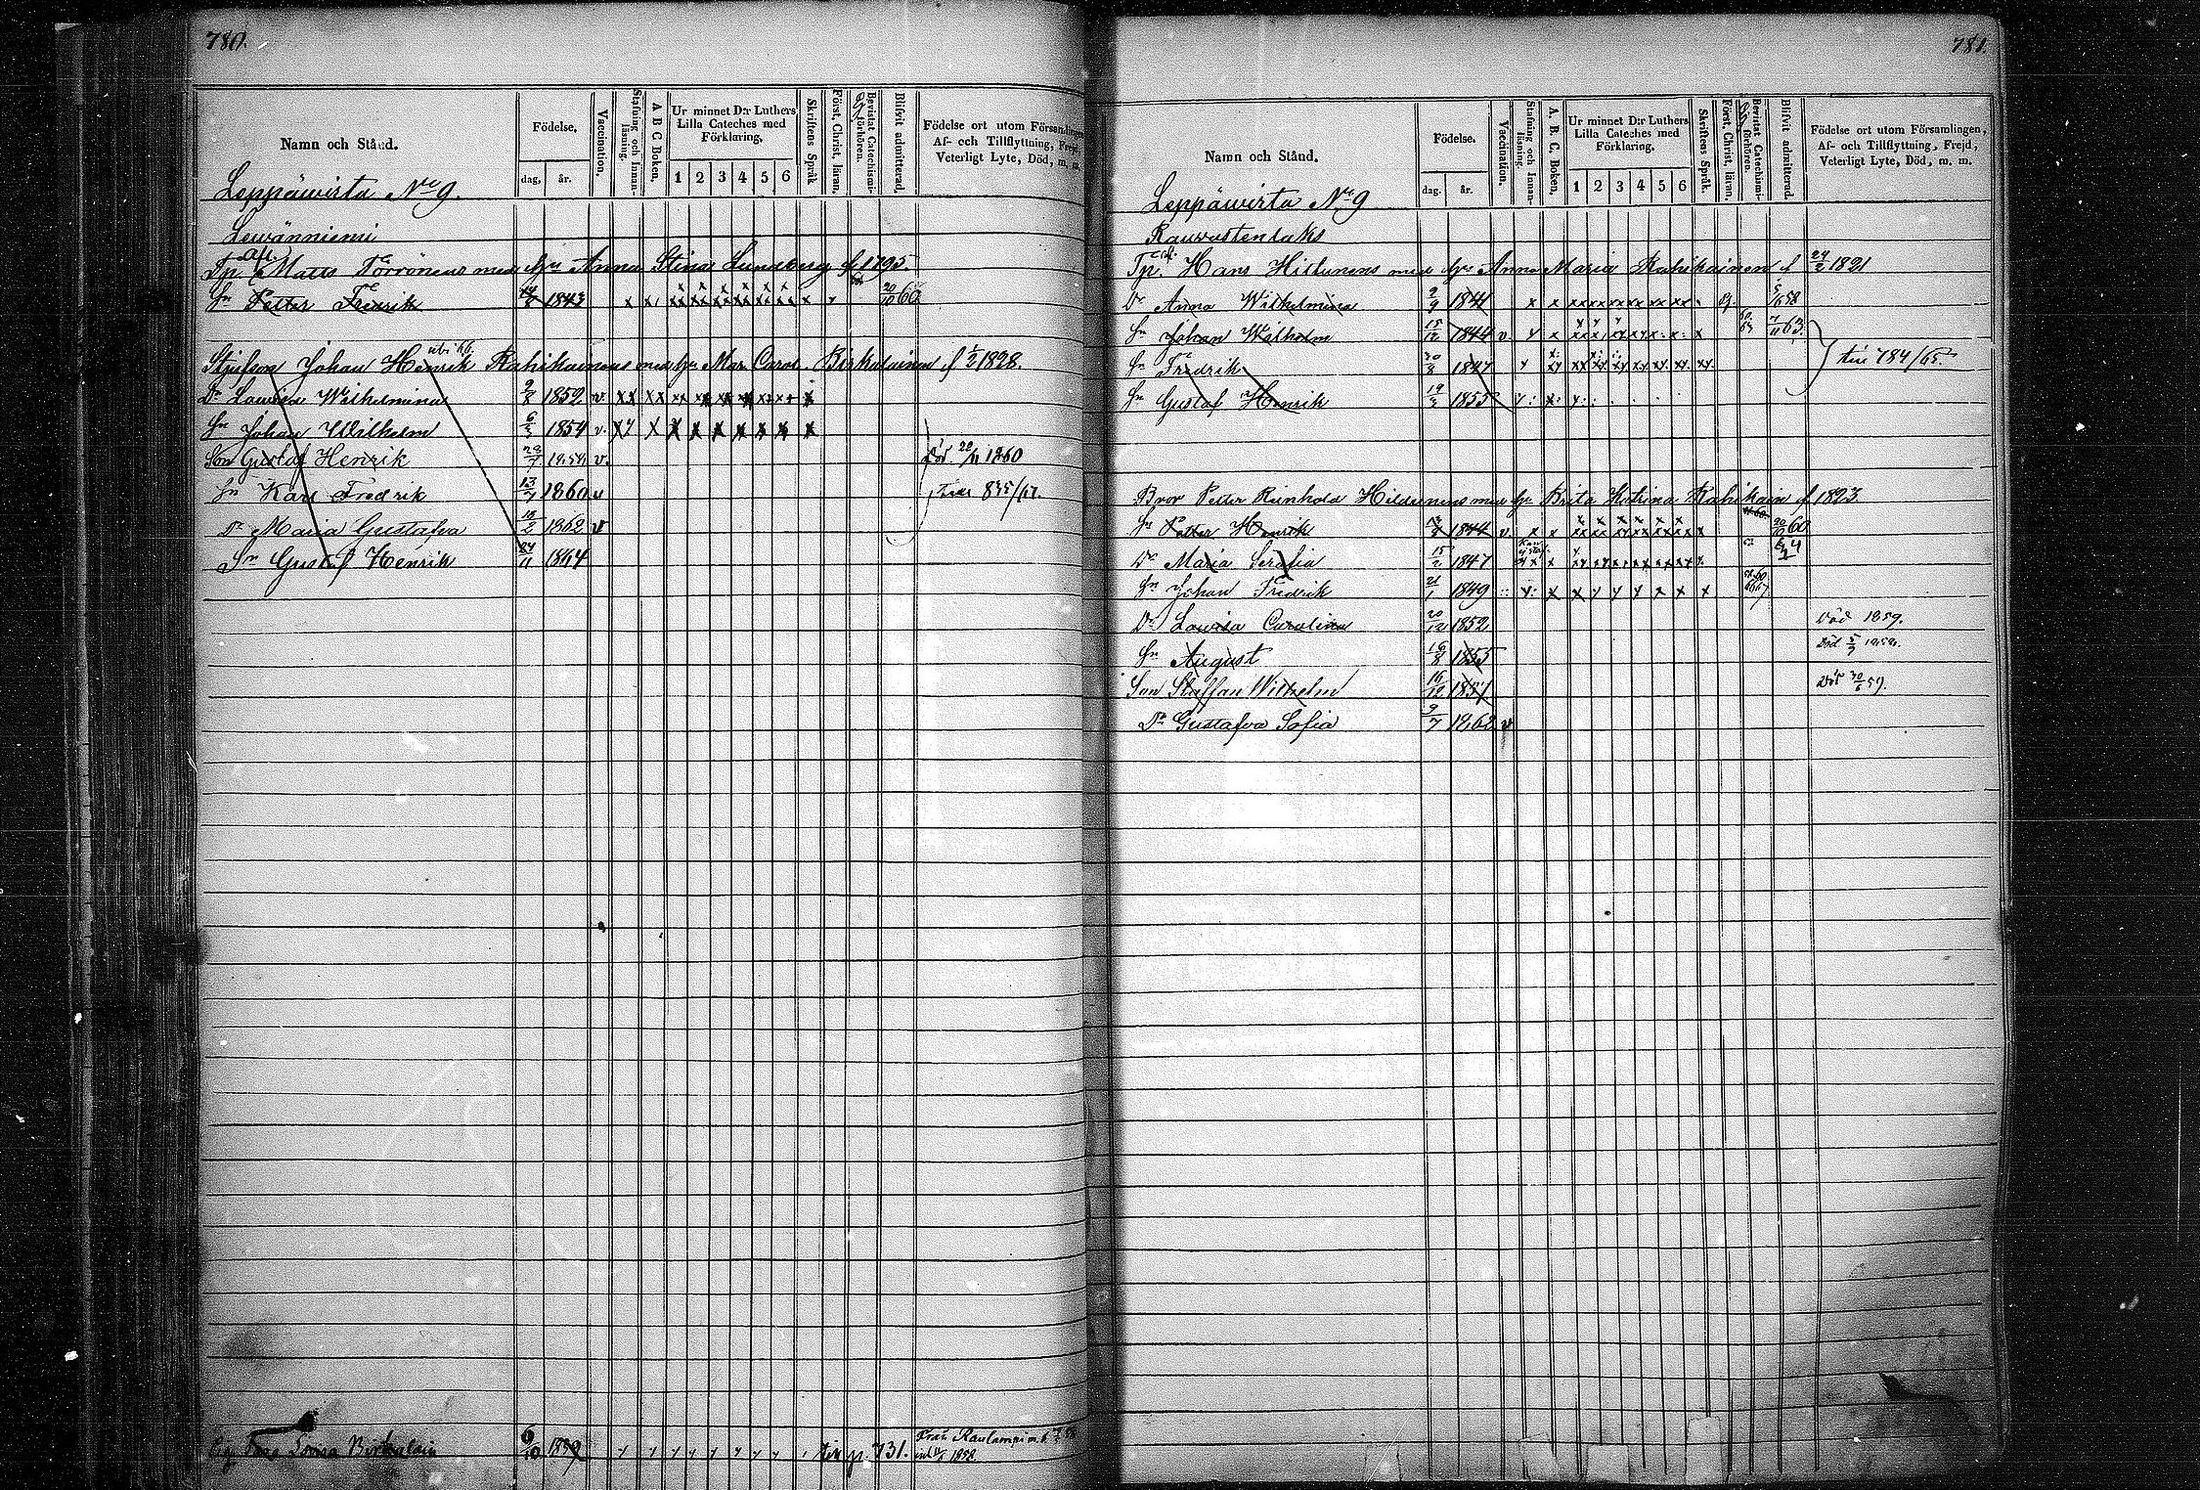 780.
Namn och Stånd.
Födelse.
dag, år.
Vaccination.
Stafning och Innanläsning.
A B C Boken.
Ur minnet D:r Luthers
Lilla Cateches med
Förklaring.
1 2 3 4 5 6
Skriftens Språk
Först. Christ. läran.
Bevistat Catechismi-förhören.
Blifvit admitterad.
Födelse ort utom Församlingen,
Af- och Tillflyttning, Frejd,
Veterligt Lyte, Död, m. m.
Leppäwirta No 9.
Lewänniemi
Tp. Matts Törrönens med hu Anna Stina Lundberg f 1795.
Sn Petter Fredrik 1843 20/10 60
Styfson Johan Henrik Rahikainens med hu Mar. Carol. Birkelainen f 1828.
Dr Lowisa Wilhelmina 1852 v
Sn Johan Wilholm 6/3 1854 v.
Son Gustaf Henrik 1858 v. Död 1860
Sn Karl Fredrik 13/7 1860 v 835/67.
Dr Maria Gustafva 18/2 1862 v
Sn Gustaf Henrik 24/11 1864
Lowisa Birkelain 6/10 p. 731. Från Rautalampi
1858
781.
Namn och Stånd.
Födelse.
dag. år.
Vaccination.
Stafning och Innanläsning
A. B. C. Boken.
Ur minnet D:r Luthers
Lilla Cateches med
Förklaring.
1 2 3 4 5 6
Skriftens Språk.
Först. Christ. läran
Bevistat Catechismi-förhören.
Blifvit admitterad.
Födelse ort utom Församlingen,
Af- och Tillflyttning, Frejd,
Veterligt Lyte, Död, m. m.
Leppäwirta No 9
Rauwastenlaks
Tp. Hans Hiltunens med hu Anna Maria Rahikainen f 24/2 1821
Dr Anna Wilhelmina 2/9 1841 58
Sn Johan Wilholm 15/12 1844 v 63
Sn Fredrik 30/8 1847 784/65.
Sn Gustaf Henrik 19/3 1855
Bror Petter Reinhold Hiltunens med hu Brita Katrina Rahikain f 1823
Sn Petter Henrik 1844 v. 20/10 60
Dr Maria Serafia 15/2 1847
Sn Johan Fredrik 21/1 1849
Dr Lowisa Carolina 20/12 1852 Död 1859.
Sn August 16/8 1855 Död 5/7 1858.
Son Staffan Wilhelm 16/12 1857 Död 30/6 59.
Dr Gustafva Sofia 9/7 1862 v